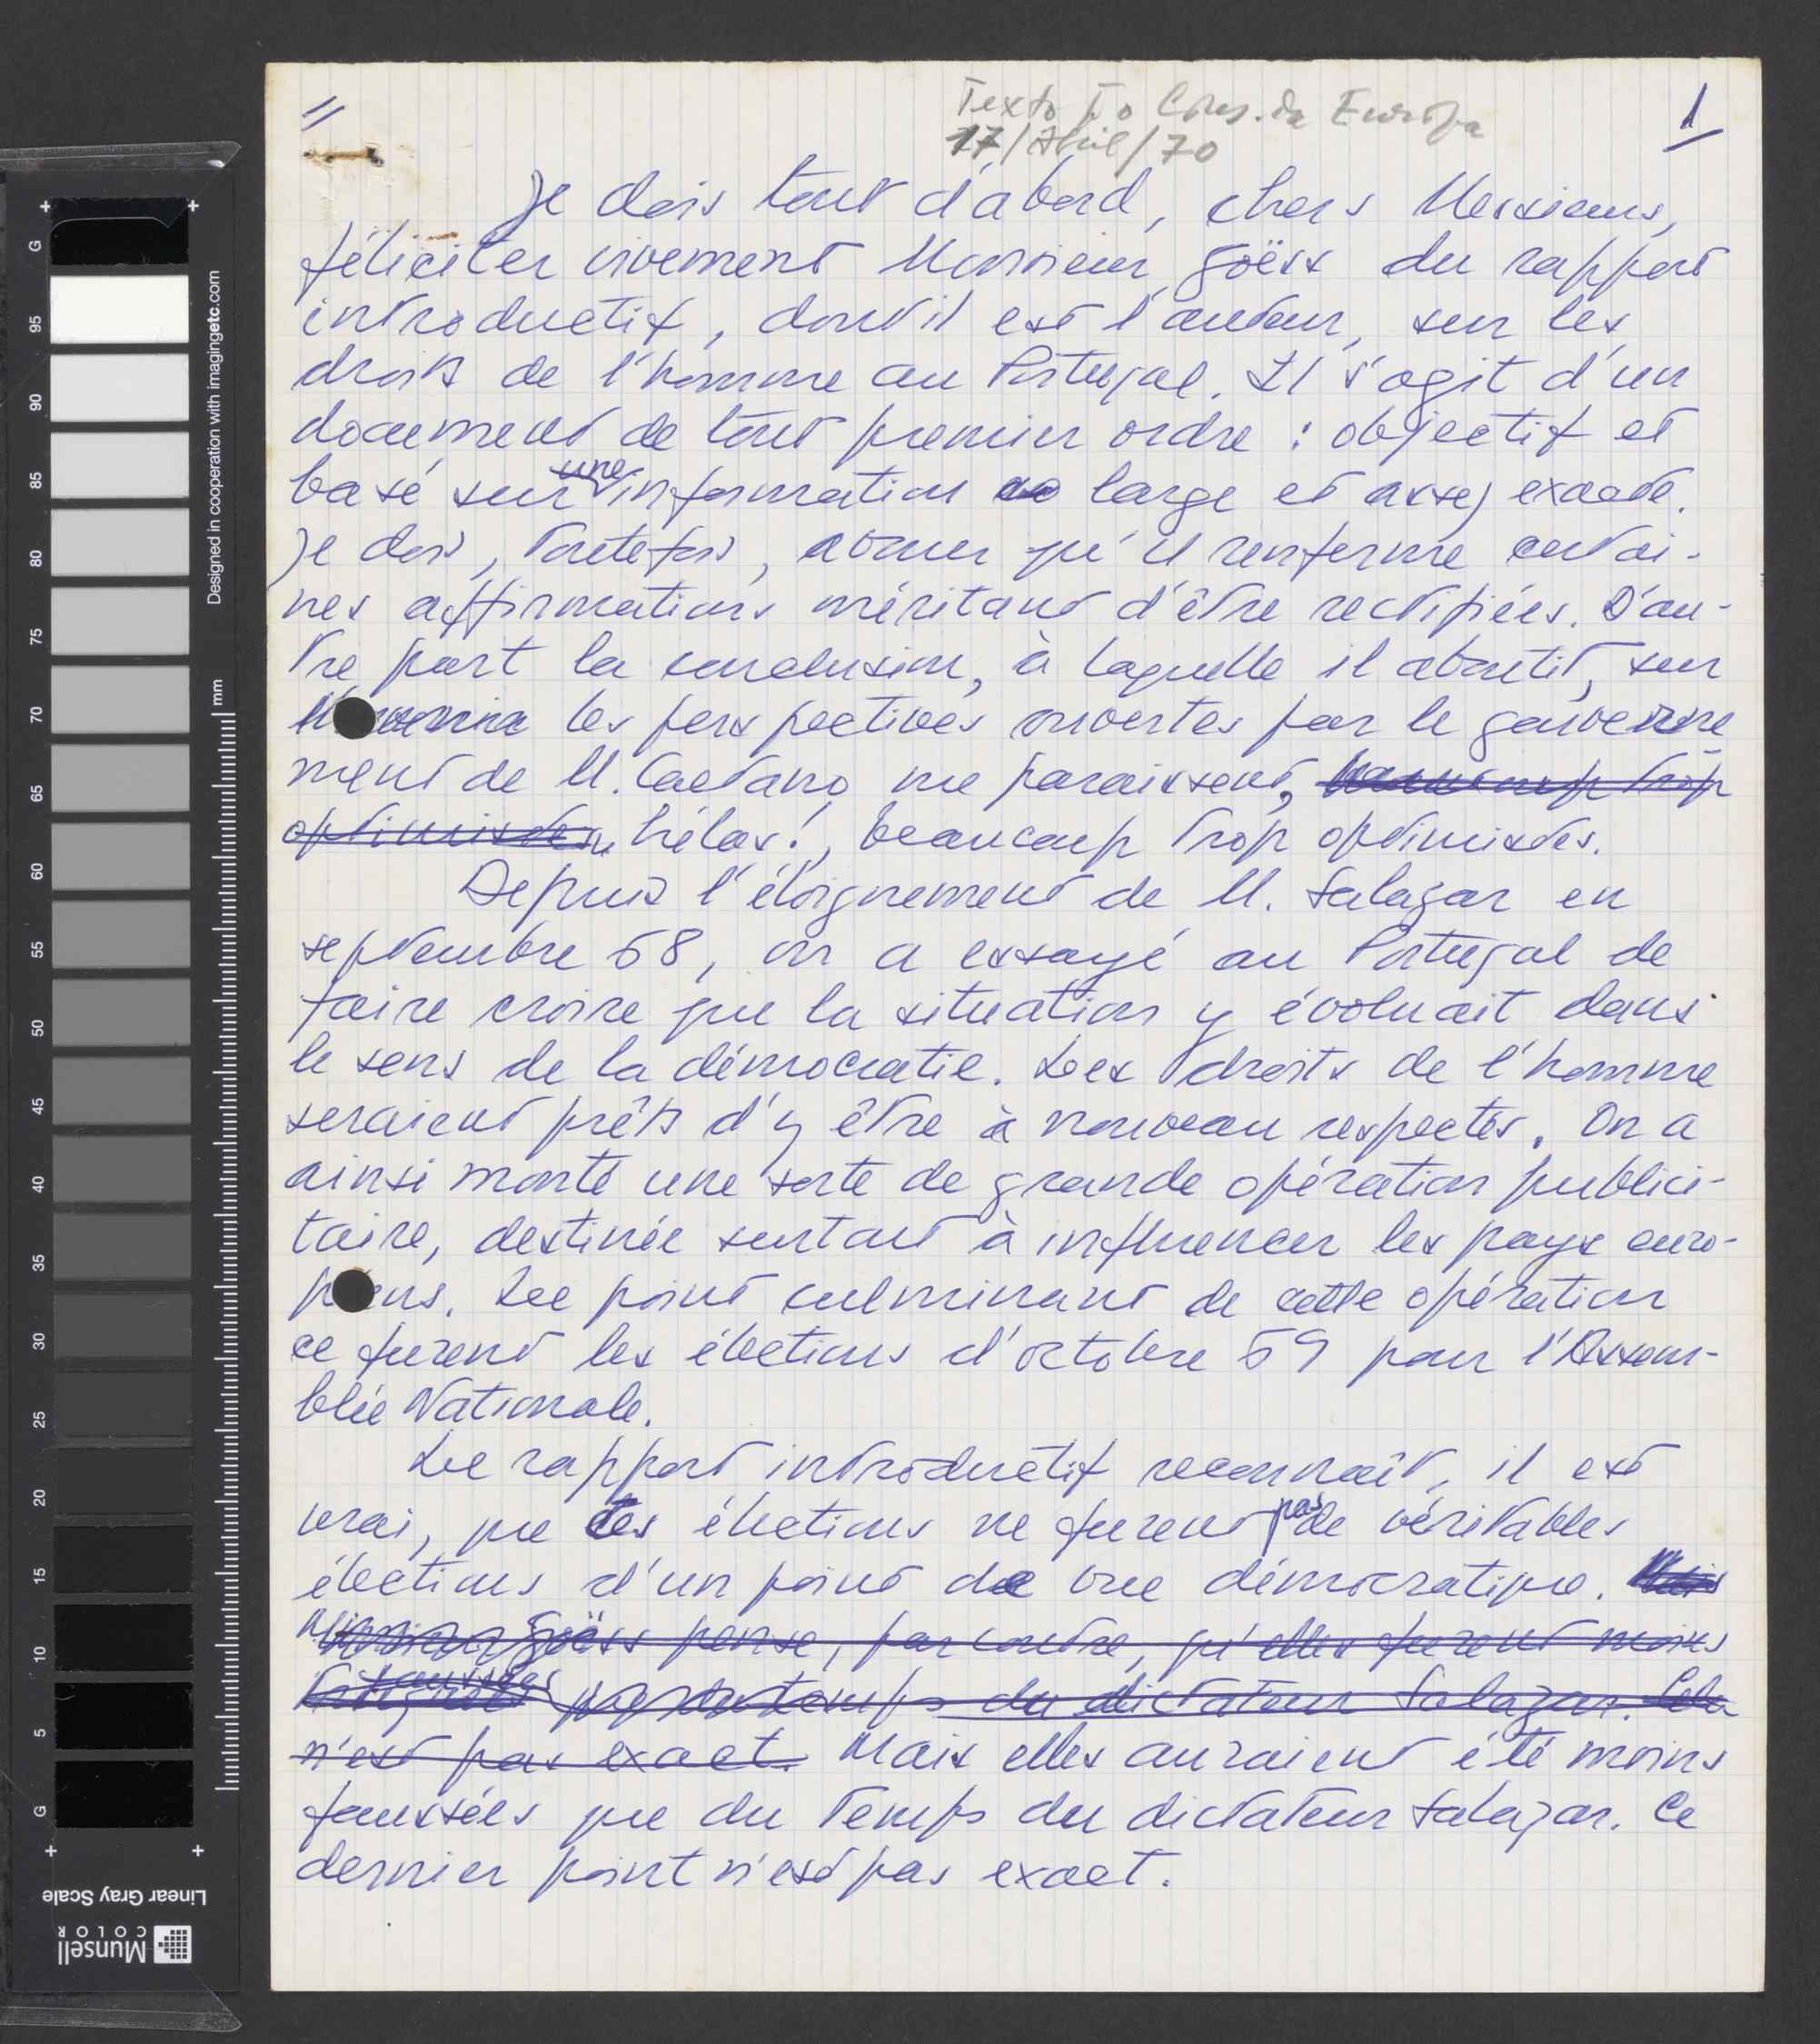 Texto p.o Cons. da Europa
17/Abril/70
1
Je dois tout d'abord, chers Messieurs,
féliciter vivement Monsieur Goëss du rapport
introductif, dont il est l'auteur, sur les
droits de l'homme au Portugal. Il s'agit d'un
document de tout premier ordre : objectif et
basé sur une information large et assez exacte.
Je dois, toutefois, avouer qu'il renferme certai-
nes affirmations méritant d'être rectifiées. D'au-
tre part la conclusion, à laquelle il aboutit, sur
les perspectives ouvertes par le gouverne
ment de M. Caetano me paraissent, beaucoup trop
optimistes, hélas!, beaucoup trop optimistes.
Depuis l'éloignement de M. Salazar en
septembre 68, on a essayé au Portugal de
faire croire que la situation y évoluait dans
le sens de la démocratie. Les droits de l'homme
seraient prêts d'y être à nouveau respectés. On a
ainsi monté une sorte de grande opération publici-
taire, destinée surtout à influencer les pays euro-
péens. Le point culminant de cette opération
ce furent les élections d'octobre 69 pour l'Assem-
blée Nationale.
Le rapport introductif reconnaît, il est
vrai, que les élections ne furent pas de véritables
élections d'un point de vue démocratique. Mais
Monsieur Goëss pense, par contre, qu'elles furent moins
faussées que du temps du dictateur Salazar. Cela
n'est pas exact. Mais elles auraient été moins
faussées que du temps du dictateur Salazar. Ce
dernier point n'est pas exact.
Designed in cooperation with imagingetc.com
mm
G
95
90
85
80
75
70
65
60
55
50
45
40
35
30
25
20
15
10
5
G
Linear Gray Scale
Munsell
COLOR